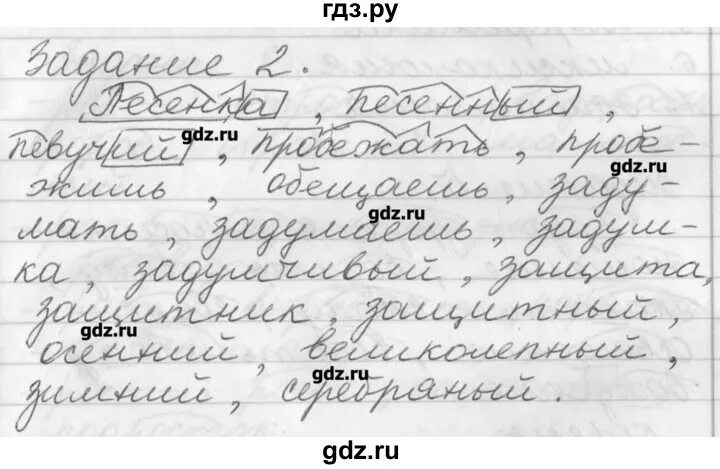 гдз.ру
Задание 2.
Песенка, песенный,
gdz.ru
певучий, пробежать, пробе-
gdz.ru
жишь, обещаешь, заду-
gdz.ru
мать, задумаешь, задум-
ка, задумчивый, защита,
защитник, защитный,
gdz.ru
осенний, великолепный,
gdz.ru
зимний, серебряный.
gdz.ru